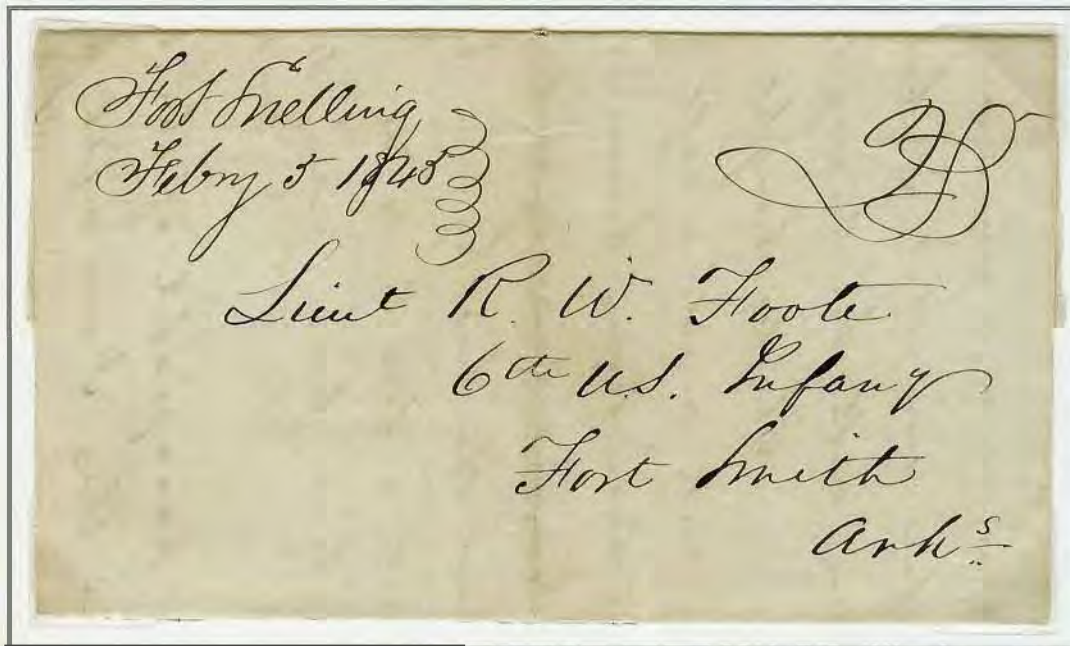 Fort Snelling
Febry 5 1845
25
Lieut R. W. Foote
6th U.S. Infany
Fort Smith
Arks